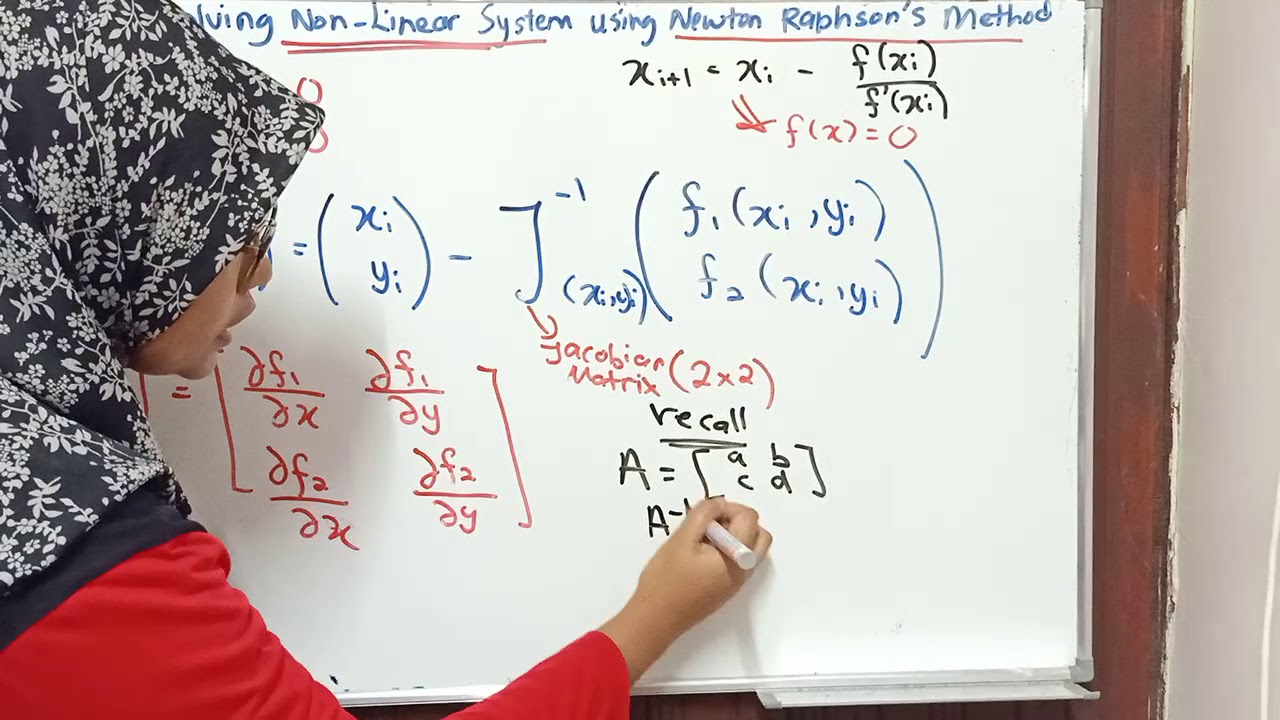 lving Non-Linear System using Newton Raphson's Method
x_{i+1} = x_i - f(x_i) / f'(x_i)
f(x) = 0
0
= (x_i y_i) - J^{-1} (x_i, y_i) (f_1(x_i, y_i)
f_2(x_i, y_i))
Jacobian
Matrix (2×2)
= [∂f_1/∂x ∂f_1/∂y
∂f_2/∂x ∂f_2/∂y]
recall
A = [a b
c d]
A^{-1}